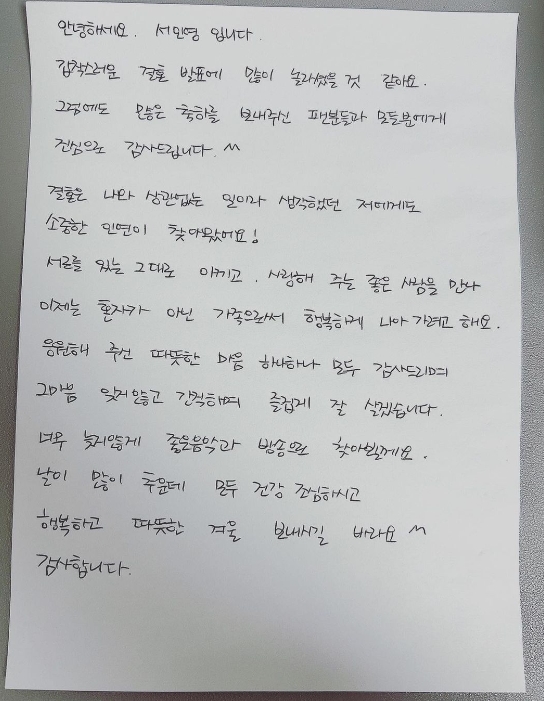 안녕하세요. 서인영 입니다.
갑작스러운 결혼 발표에 많이 놀라셨을 것 같아요.
그럼에도 많은 축하를 보내주신 팬분들과 모든분에게
진심으로 감사드립니다. ^^
결혼은 나와 상관없는 일이라 생각했던 저에게도
소중한 인연이 찾아왔어요!
서로를 있는 그대로 아끼고, 사랑해 주는 좋은 사람을 만나
이제는 혼자가 아닌 가족으로서 행복하게 나아 가려고 해요.
응원해 주신 따뜻한 마음 하나하나 모두 감사드리며
그마음 잊지않고 간직하며 즐겁게 잘 살겠습니다.
너무 늦지않게 좋은음악과 방송으로 찾아뵐께요.
날이 많이 추운데 모두 건강 조심하시고
행복하고 따뜻한 겨울 보내시길 바라요 ^^
감사합니다.